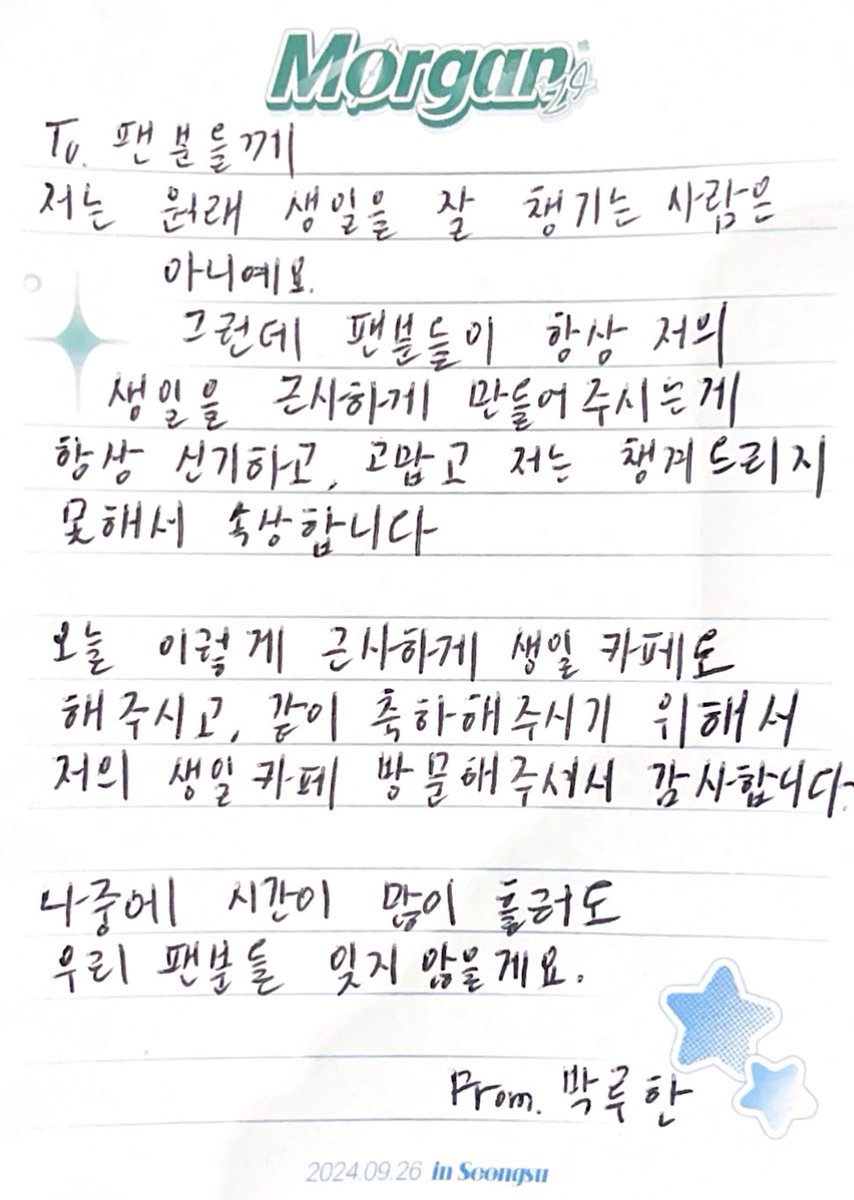 Morgan
24
To. 팬분들께
저는 원래 생일을 잘 챙기는 사람은
아니예요.
그런데 팬분들이 항상 저의
생일을 근사하게 만들어주시는게
항상 신기하고, 고맙고 저는 챙겨드리지
못해서 속상합니다
오늘 이렇게 근사하게 생일 카페도
해주시고, 같이 축하해주시기 위해서
저의 생일 카페 방문해주셔서 감사합니다.
나중에 시간이 많이 흘러도
우리 팬분들 잊지 않을게요.
From. 박루한
2024.09.26 in Seongsu